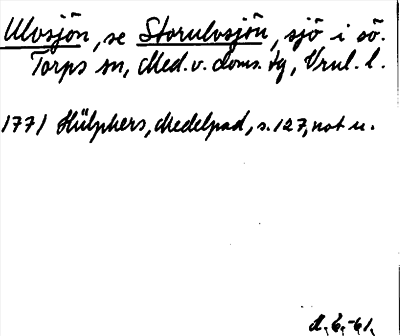 Ulvsjön, se Storulvsjön, sjö i sö.
Torps sn, Med. v. doms. tg, Vnl. l.
1771 Hülphers, Medelpad, s. 127, not u.